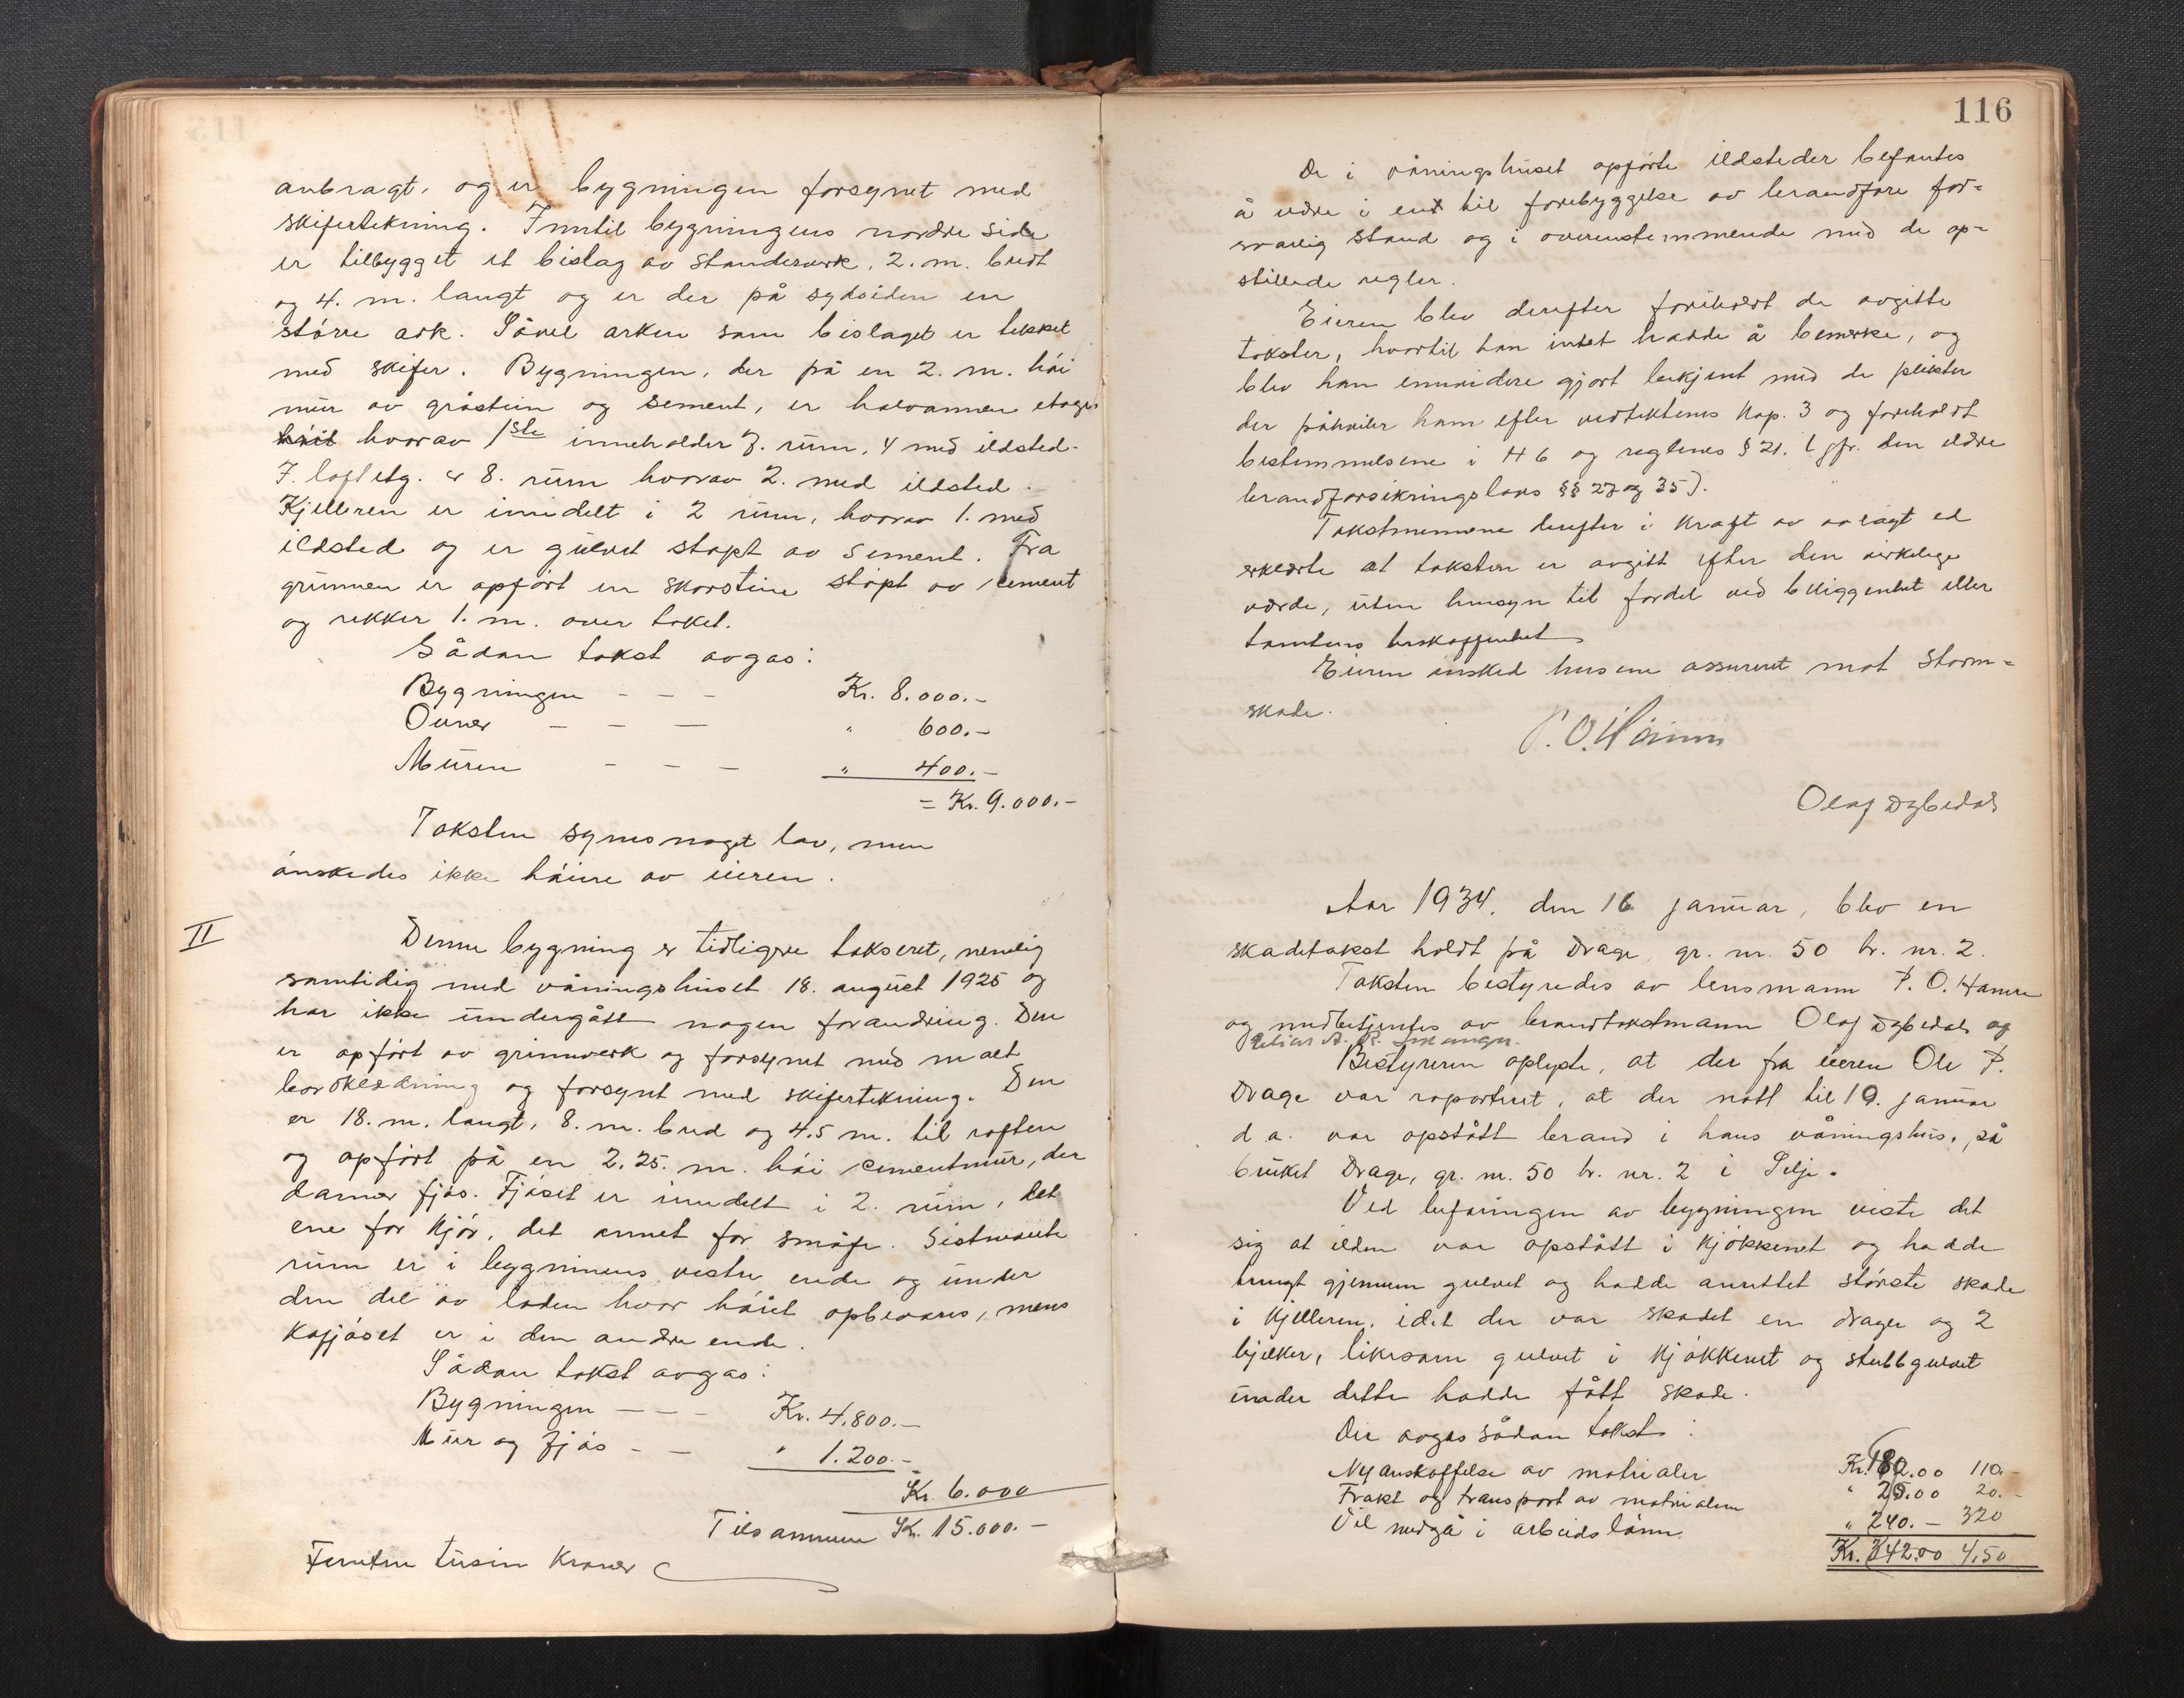 anbragt, og er bygningen forsynet med
skifertekning. Inntil bygningens nordre side
er tilbygget et bislag av standerverk, 2. m. bredt
og 4. m. langt og er der på sydsiden en
större ark. Såvel arken som bislaget er tekket
med skifer. Bygningen, der på en 2. m. höi
mur av gråstein og sement, er halvannen etages
höit hvorav 1ste inneholder 7. rum, 4 med ildsted.
I loftetg. er 8. rum hvorav 2. med ildsted.
Kjelleren er innidelt i 2 rum, hvorav 1. med
ildsted og er gulvet stöpt av sement. Fra
grunnen er opfört en skorstein stöpt av cement
og rekker 1. m. over taket.
Sådan takst avgas:
Bygningen - - - Kr. 8.000.-
Ovner - - - " 600.-
Muren - - - " 400.-
= Kr. 9.000.-
Taksten synes noget lav, men
önskedes ikke höiere av eieren.
II Denne bygning er tidligere taksert, nemlig
samtidig med våningshuset 18. august 1925 og
har ikke undergått nogen forandring. Den
er opfört av grinnverk og forsynet med malt
bordklædning og forsynt med skifertekning. Den
er 18. m. langt, 8. m. bred og 4.5 m. til roften
og opfört på en 2.25. m. höi cementmur, der
danner fjös. Fjöset er inndelt i 2. rum, det
ene for kjör, det annet for småfe. Sistnevnte
rum er i bygninens vestre ende og under
den del av laden hvor höiet opbevares, mens
kofjöset er i den andre ende.
Sådan takst avgas:
Bygningen - - - Kr. 4.800.-
Mur og fjös - - " 1.200.-
Kr. 6.000
Tilsammen Kr. 15.000.-
Femten tusin Kroner
116
De i våningshuset opförte ildsteder befantes
å være i en til forebyggelse av brandfare for-
svarlig stand og i overenstemmende med de op-
stillede regler.
Eieren blev derefter foreholdt de avgitte
takster, hvortil han intet hadde å bemerke, og
blev han ennvidere gjort bekjent med de plikter
der påhviler ham efter vedtektenes kap. 3 og foreholdt
bestemmelsene i H 6 og reglenes § 21. (jfr. den eldre
brandforsikringslovs §§ 27 og 35).
Takstmennene derefter i kraft av avlagt ed
erklærte at taksten er avgitt efter den virkelige
værde, uten hensyn til fordel ved beliggenhet eller
tomtens beskaffenhet
Eieren önsked husene assurert mot storm-
skade.
P. O. Hamre
Olaf Dybedal
Aar 1934, den 16 januar, blev en
skadetakst holdt på Drage, gr. nr. 50 br. nr. 2.
Taksten bestyredes av lensmann P. O. Hamre
og medbetjentes av brandtakstmann Olaf Dybedal og
Elias A. R.
Bestyreren oplyste, at der fra eieren Ole P.
Drage var raporteret, at der natt til 10. januar
d a. var opstått brand i hans våningshus, på
bruket Drage, gr. nr. 50 br. nr. 2 i Selje.
Ved befaringen av bygningen viste det
sig at ilden var opstått i kjökkenet og hadde
trengt gjennem gulvet og hadde anrettet störste skade
i kjelleren, idet der var skadet en drager og 2
bjelker, likesom gulvet i kjökkenet og stubbgulvet
under dette hadde fått skade.
Der avgas sådan takst:
Nyanskaffelse av materialer Kr. 82.00 110.-
Frakt og transport av materialene " 20.00 20.-
Vil medgå i arbeidslönn " 240.- 320
Kr. 342.00 450